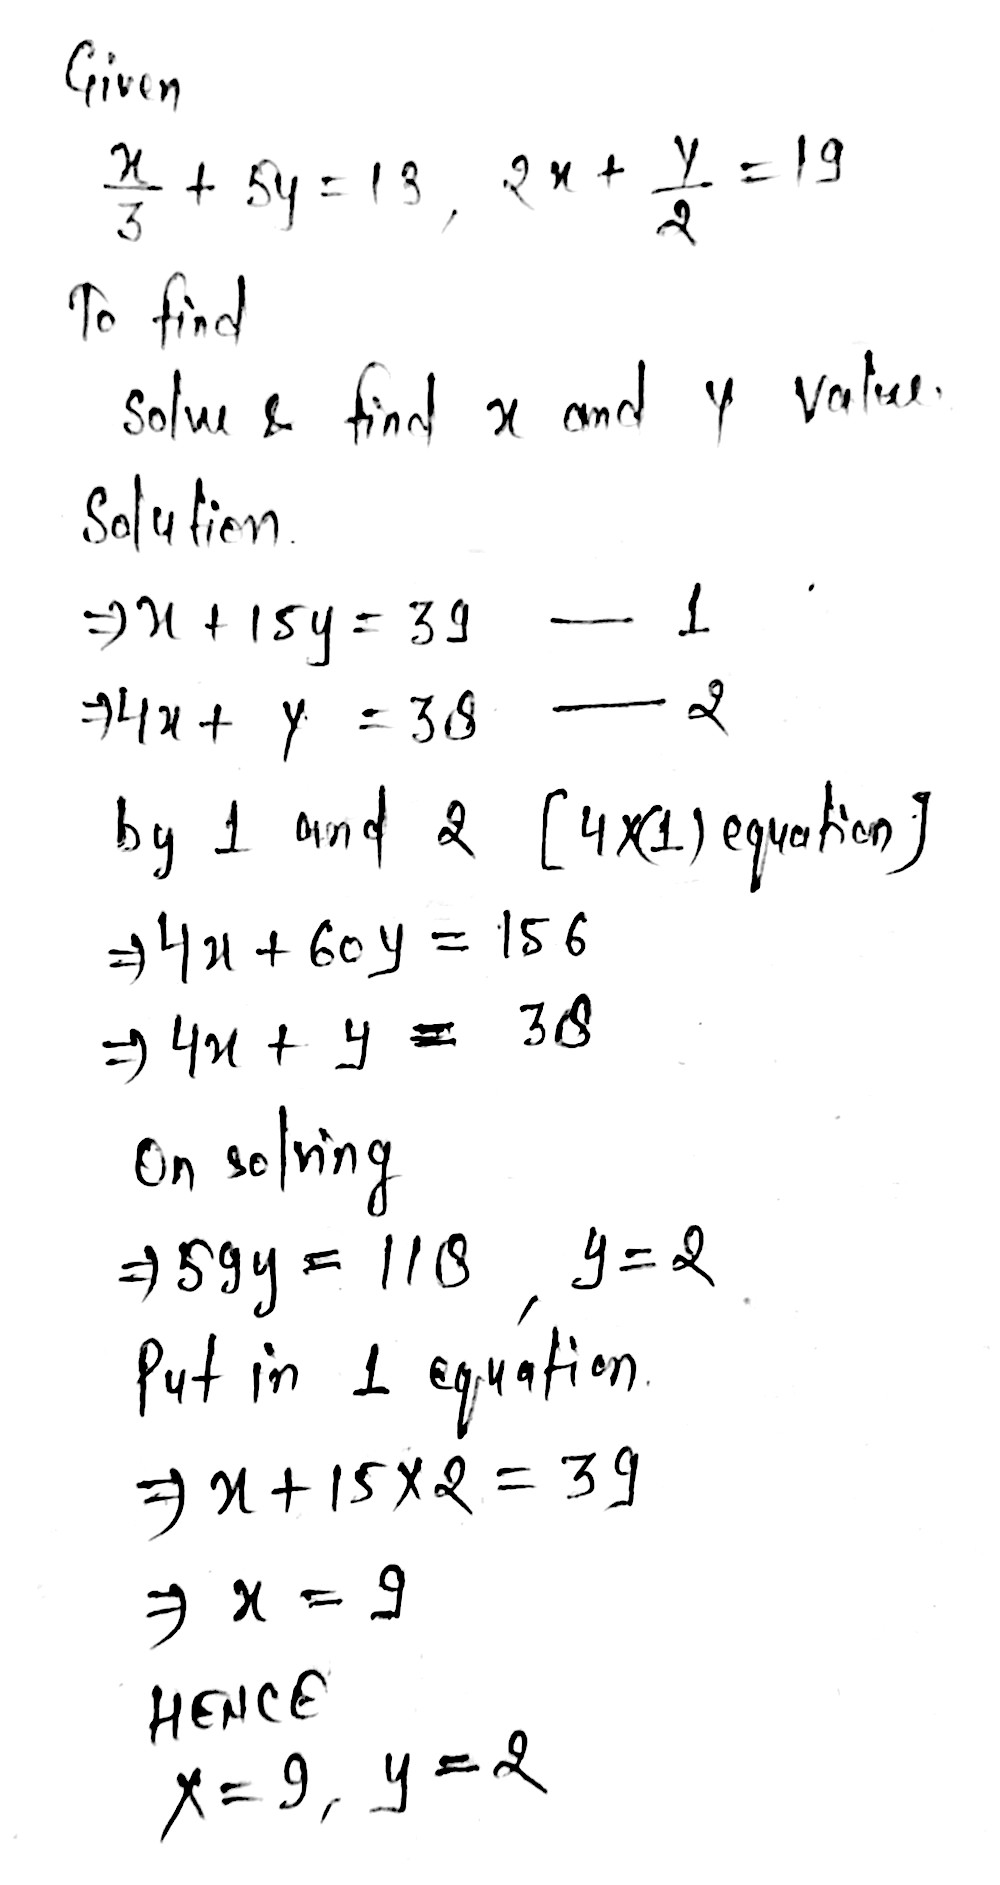 Given
x/3 + 5y = 13, 2x + y/2 = 19
To find
Solve & find x and y value.
Solution.
⇒ x + 15y = 39 — 1
⇒ 4x + y = 38 — 2
by 1 and 2 [4×(1) equation]
⇒ 4x + 60y = 156
⇒ 4x + y = 38
On solving
⇒ 59y = 118, y = 2
Put in 1 equation.
⇒ x + 15 × 2 = 39
⇒ x = 9
HENCE
x = 9, y = 2